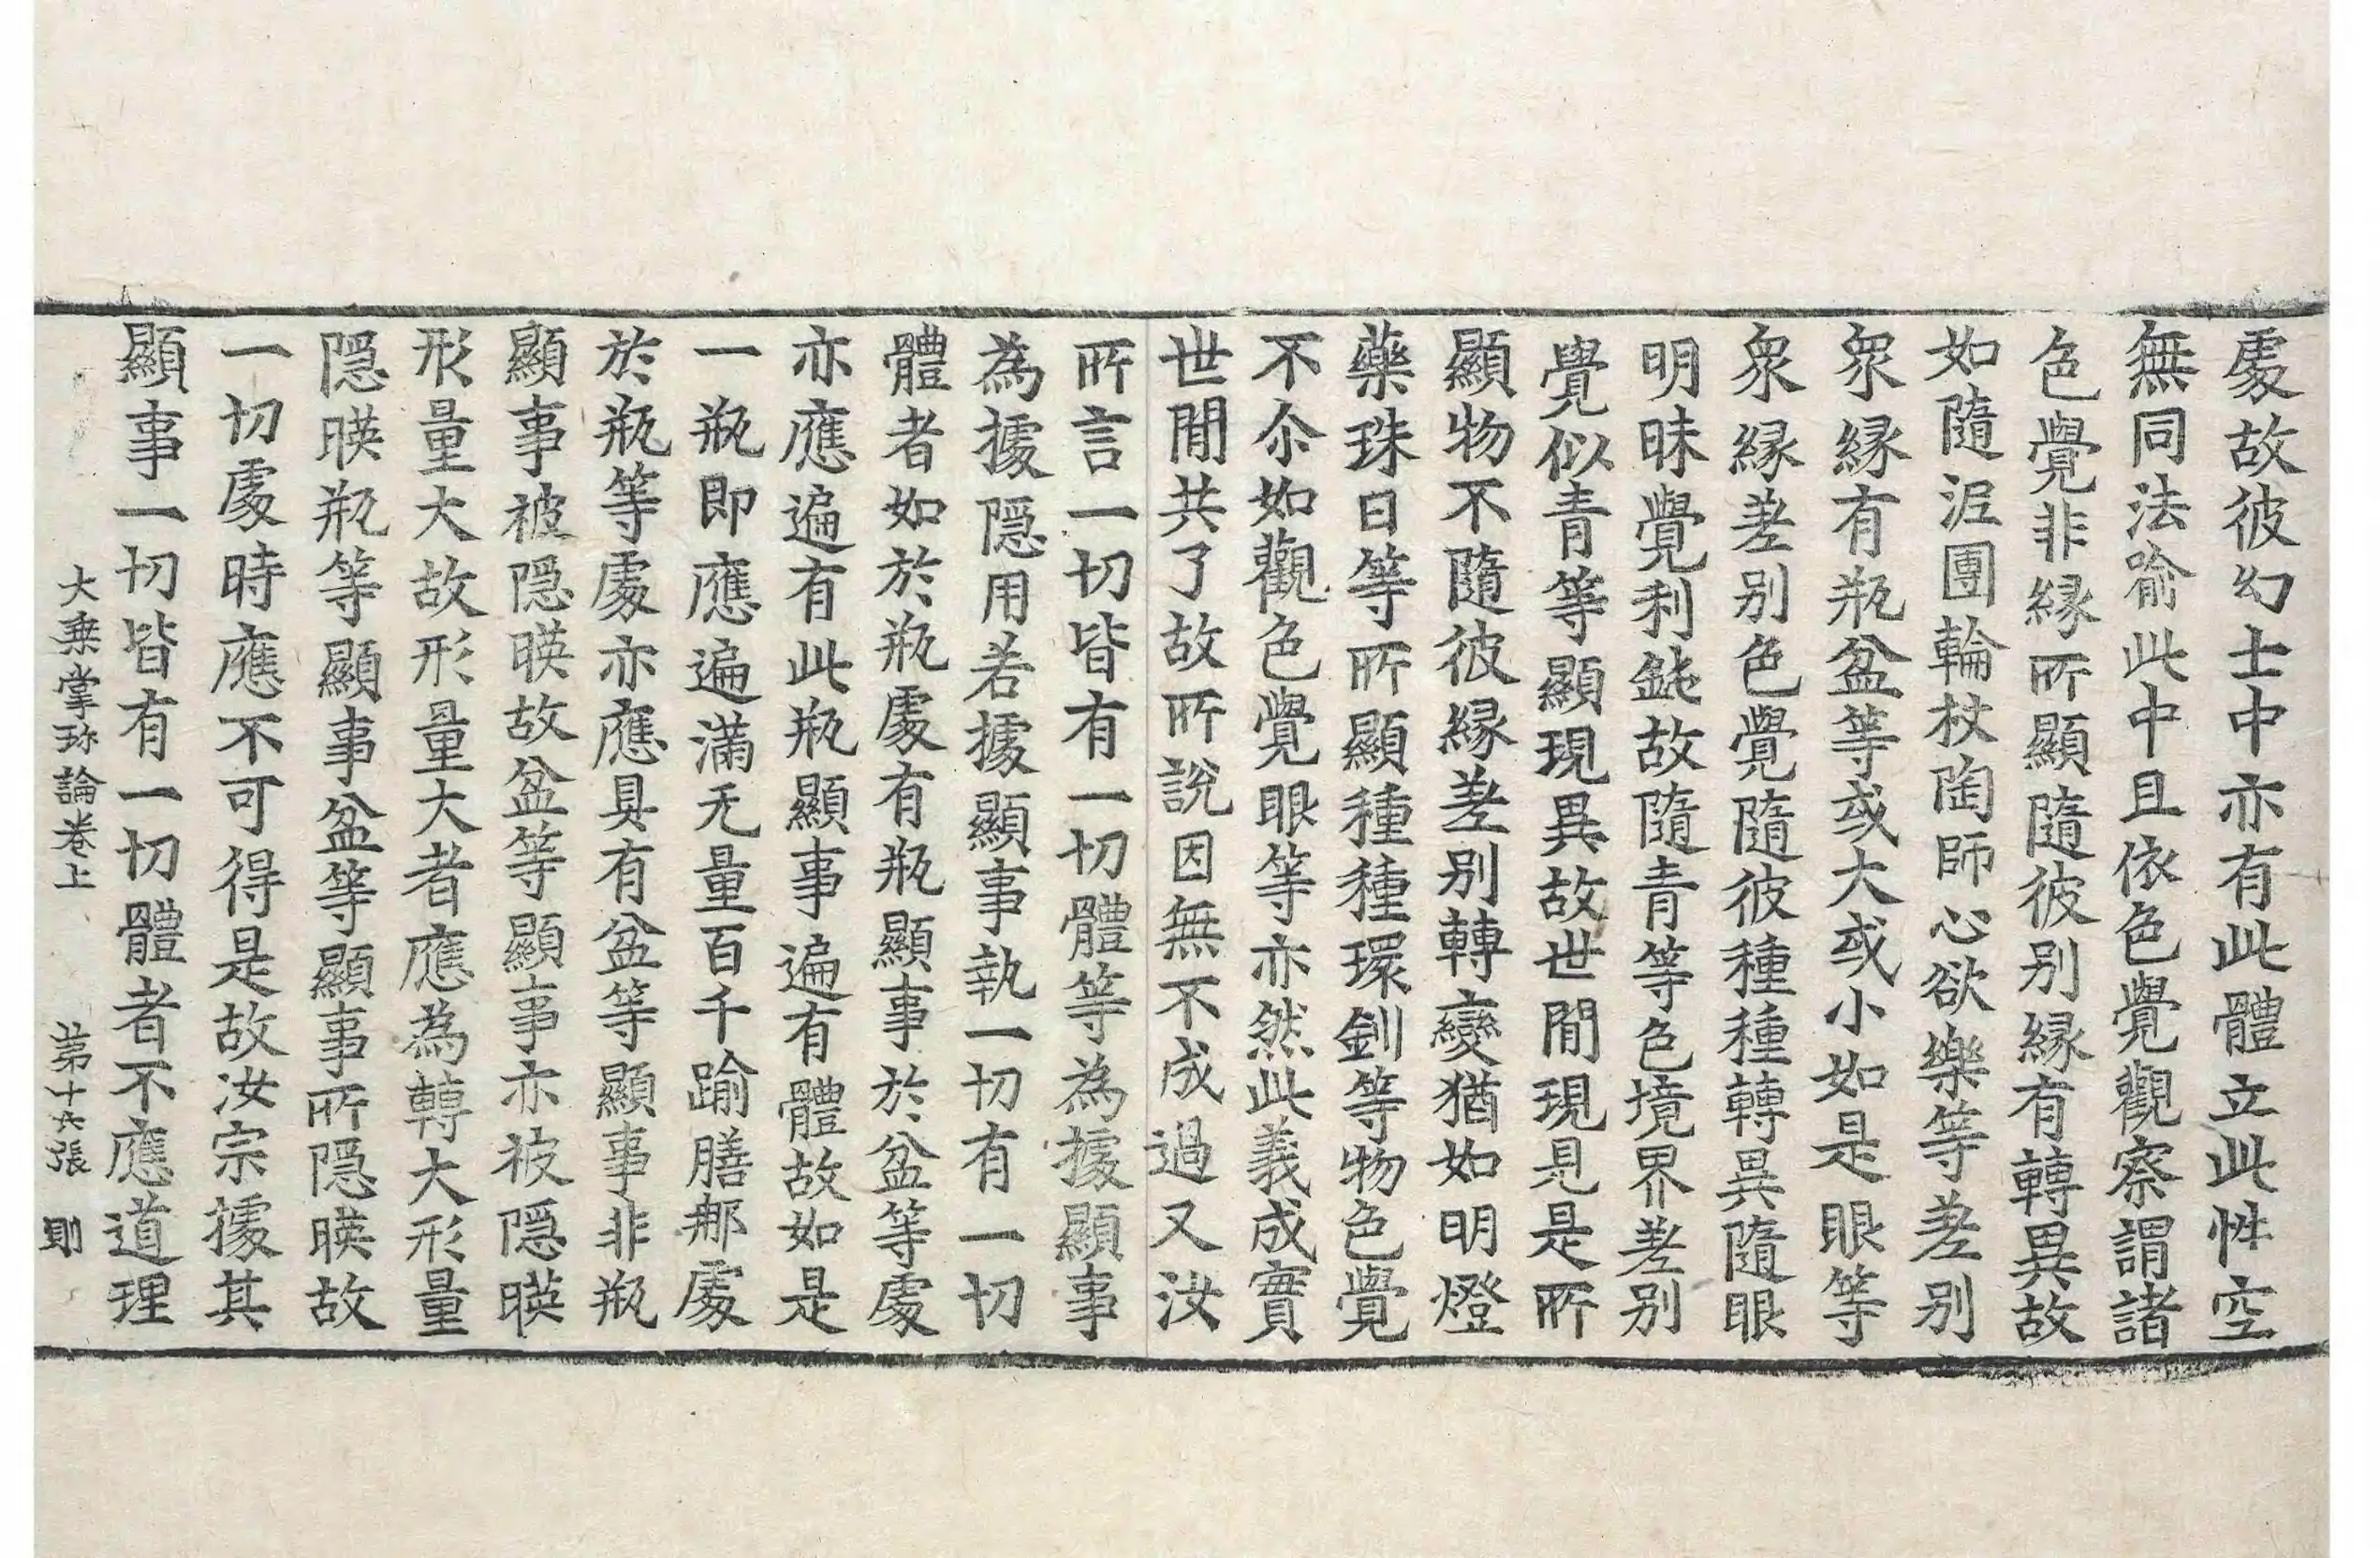 處故彼幻士中亦有此體立此性空
無同法喻此中且依色覺觀察謂諸
色覺非緣所顯隨彼別緣有轉異故
如隨泥團輪杖陶師心欲樂等差別
眾緣有瓶盆等或大或小如是眼等
眾緣差別色覺隨彼種種轉異隨眼
明昧覺利鈍故隨青等色境界差別
覺似青等顯現異故世間現見是所
顯物不隨彼緣差別轉變猶如明燈
藥珠日等所顯種種環釧等物色覺
不尒如觀色覺眼等亦然此義成實
世間共了故所說因無不成過又汝
所言一切皆有一切體等為據顯事
為據隱用若據顯事執一切有一切
體者如於瓶處有瓶顯事於盆等處
亦應遍有此瓶顯事遍有體故如是
一瓶即應遍滿无量百千踰膳那處
於瓶等處亦應具有盆等顯事非瓶
顯事被隱暎故盆等顯事亦被隱暎
形量大故形量大者應為轉大形量
隱暎瓶等顯事盆等顯事所隱暎故
一切處時應不可得是故汝宗據其
顯事一切皆有一切體者不應道理
大乘掌珎論卷上 第十六張 則